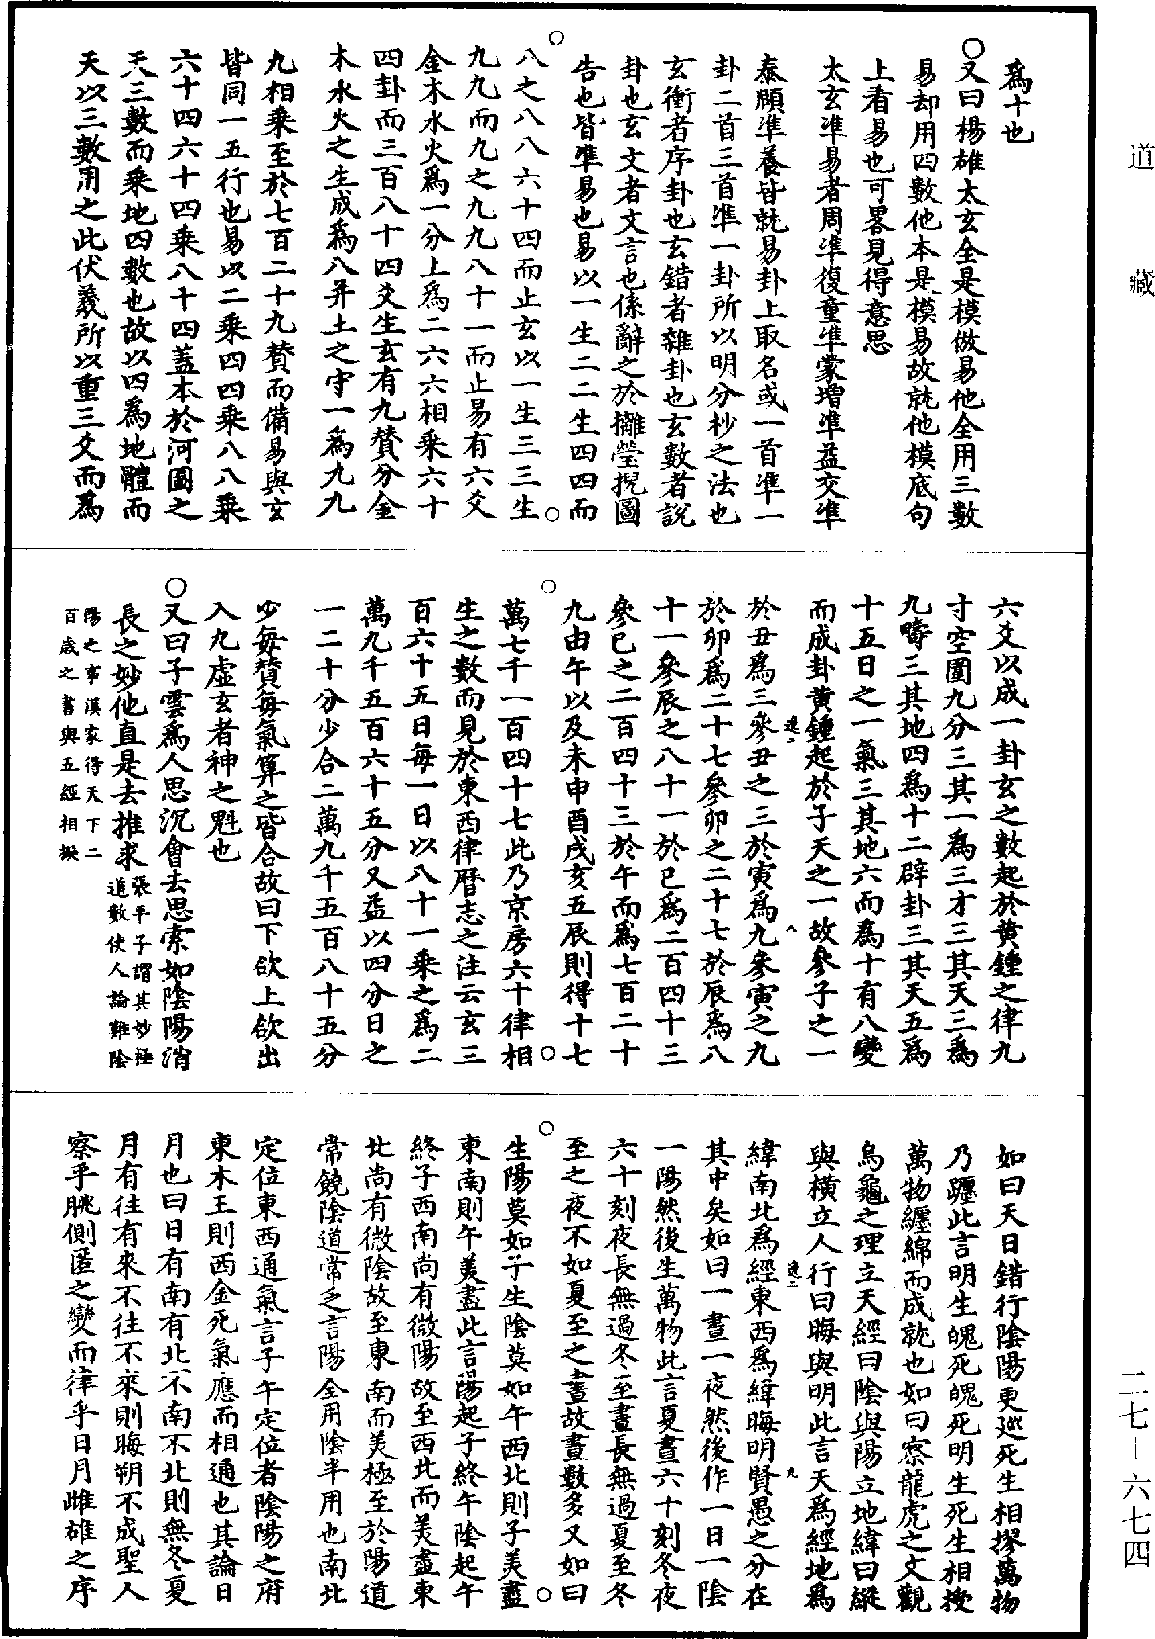 道藏
二七－六七四
爲十也
○又曰楊雄太玄全是模倣易他全用三數
易却用四數他本是模易故就他模底句
上看易也可畧見得意思
太玄準易者周準復童準蒙增準益交準
泰頤準養皆就易卦上取名或一首準一
卦二首三首準一卦所以明分杪之法也
玄衝者序卦也玄錯者雜卦也玄數者說
卦也玄文者文言也係辭之於攡瑩掜圖
告也皆準易也易以一生二二生四四而
八之八八六十四而止玄以一生三三生
九九而九之九九八十一而止易有六爻
金木水火爲一分上爲二六六相乘六十
四卦而三百八十四爻生玄有九賛分金
木水火之生成爲八并土之守一爲九九
九相乘至於七百二十九賛而備易與玄
皆同一五行也易以二乘四四乘八八乘
六十四六十四乘八十四蓋本於河圖之
天三數而乘地四數也故以四爲地體而
天以三數用之此伏羲所以重三爻而爲
六爻以成一卦玄之數起於黄鍾之律九
寸空圍九分三其一爲三才三其天三爲
九疇三其地四爲十二辟卦三其天五爲
十五日之一氣三其地六而爲十有八變
而成卦黄鍾起於子天之一故參子之一
於丑爲三參丑之三於寅爲九參寅之九
於卯爲二十七參卯之二十七於辰爲八
十一參辰之八十一於巳爲二百四十三
參巳之二百四十三於午而爲七百二十
九由午以及未申酉戌亥五辰則得十七
萬七千一百四十七此乃京房六十律相
生之數而見於東西律曆志之注云玄三
百六十五日每一日以八十一乘之爲二
萬九千五百六十五分又益以四分日之
一二十分少合二萬九千五百八十五分
少每賛每氣算之皆合故曰下欲上欲出
入九虛玄者神之魁也
○又曰子雲爲人思沉會去思索如陰陽消
長之妙他直是去推求張平子謂其妙極
道數使人論難陰
陽之事漢家得天下二
百歲之書與五經相擬
如曰天日錯行陰陽更巡死生相摎萬物
乃纏此言明生魄死魄死明生死生相授
萬物纏綿而成就也如曰察龍虎之文觀
烏龜之理立天經曰陰與陽立地緯曰縱
與橫立人行曰晦與明此言天爲經地爲
緯南北爲經東西爲緯晦明賢愚之分在
其中矣如曰一晝一夜然後作一日一陰
一陽然後生萬物此言夏晝六十刻冬夜
六十刻夜長無過冬至晝長無過夏至冬
至之夜不如夏至之晝故晝數多又如曰
生陽莫如子生陰莫如午西北則子美盡
東南則午美盡此言陽起子終午陰起午
終子西南尚有微陽故至西北而美盡東
北尚有微陰故至東南而美極至於陽道
常饒陰道常乏言陽全用陰半用也南北
定位東西通氣言子午定位者陰陽之府
東木王則西金死氣應而相通也其論日
月也曰日有南有北不南不北則無冬夏
月有往有來不往不來則晦朔不成聖人
察乎朓側匿之變而律乎日月雌雄之序